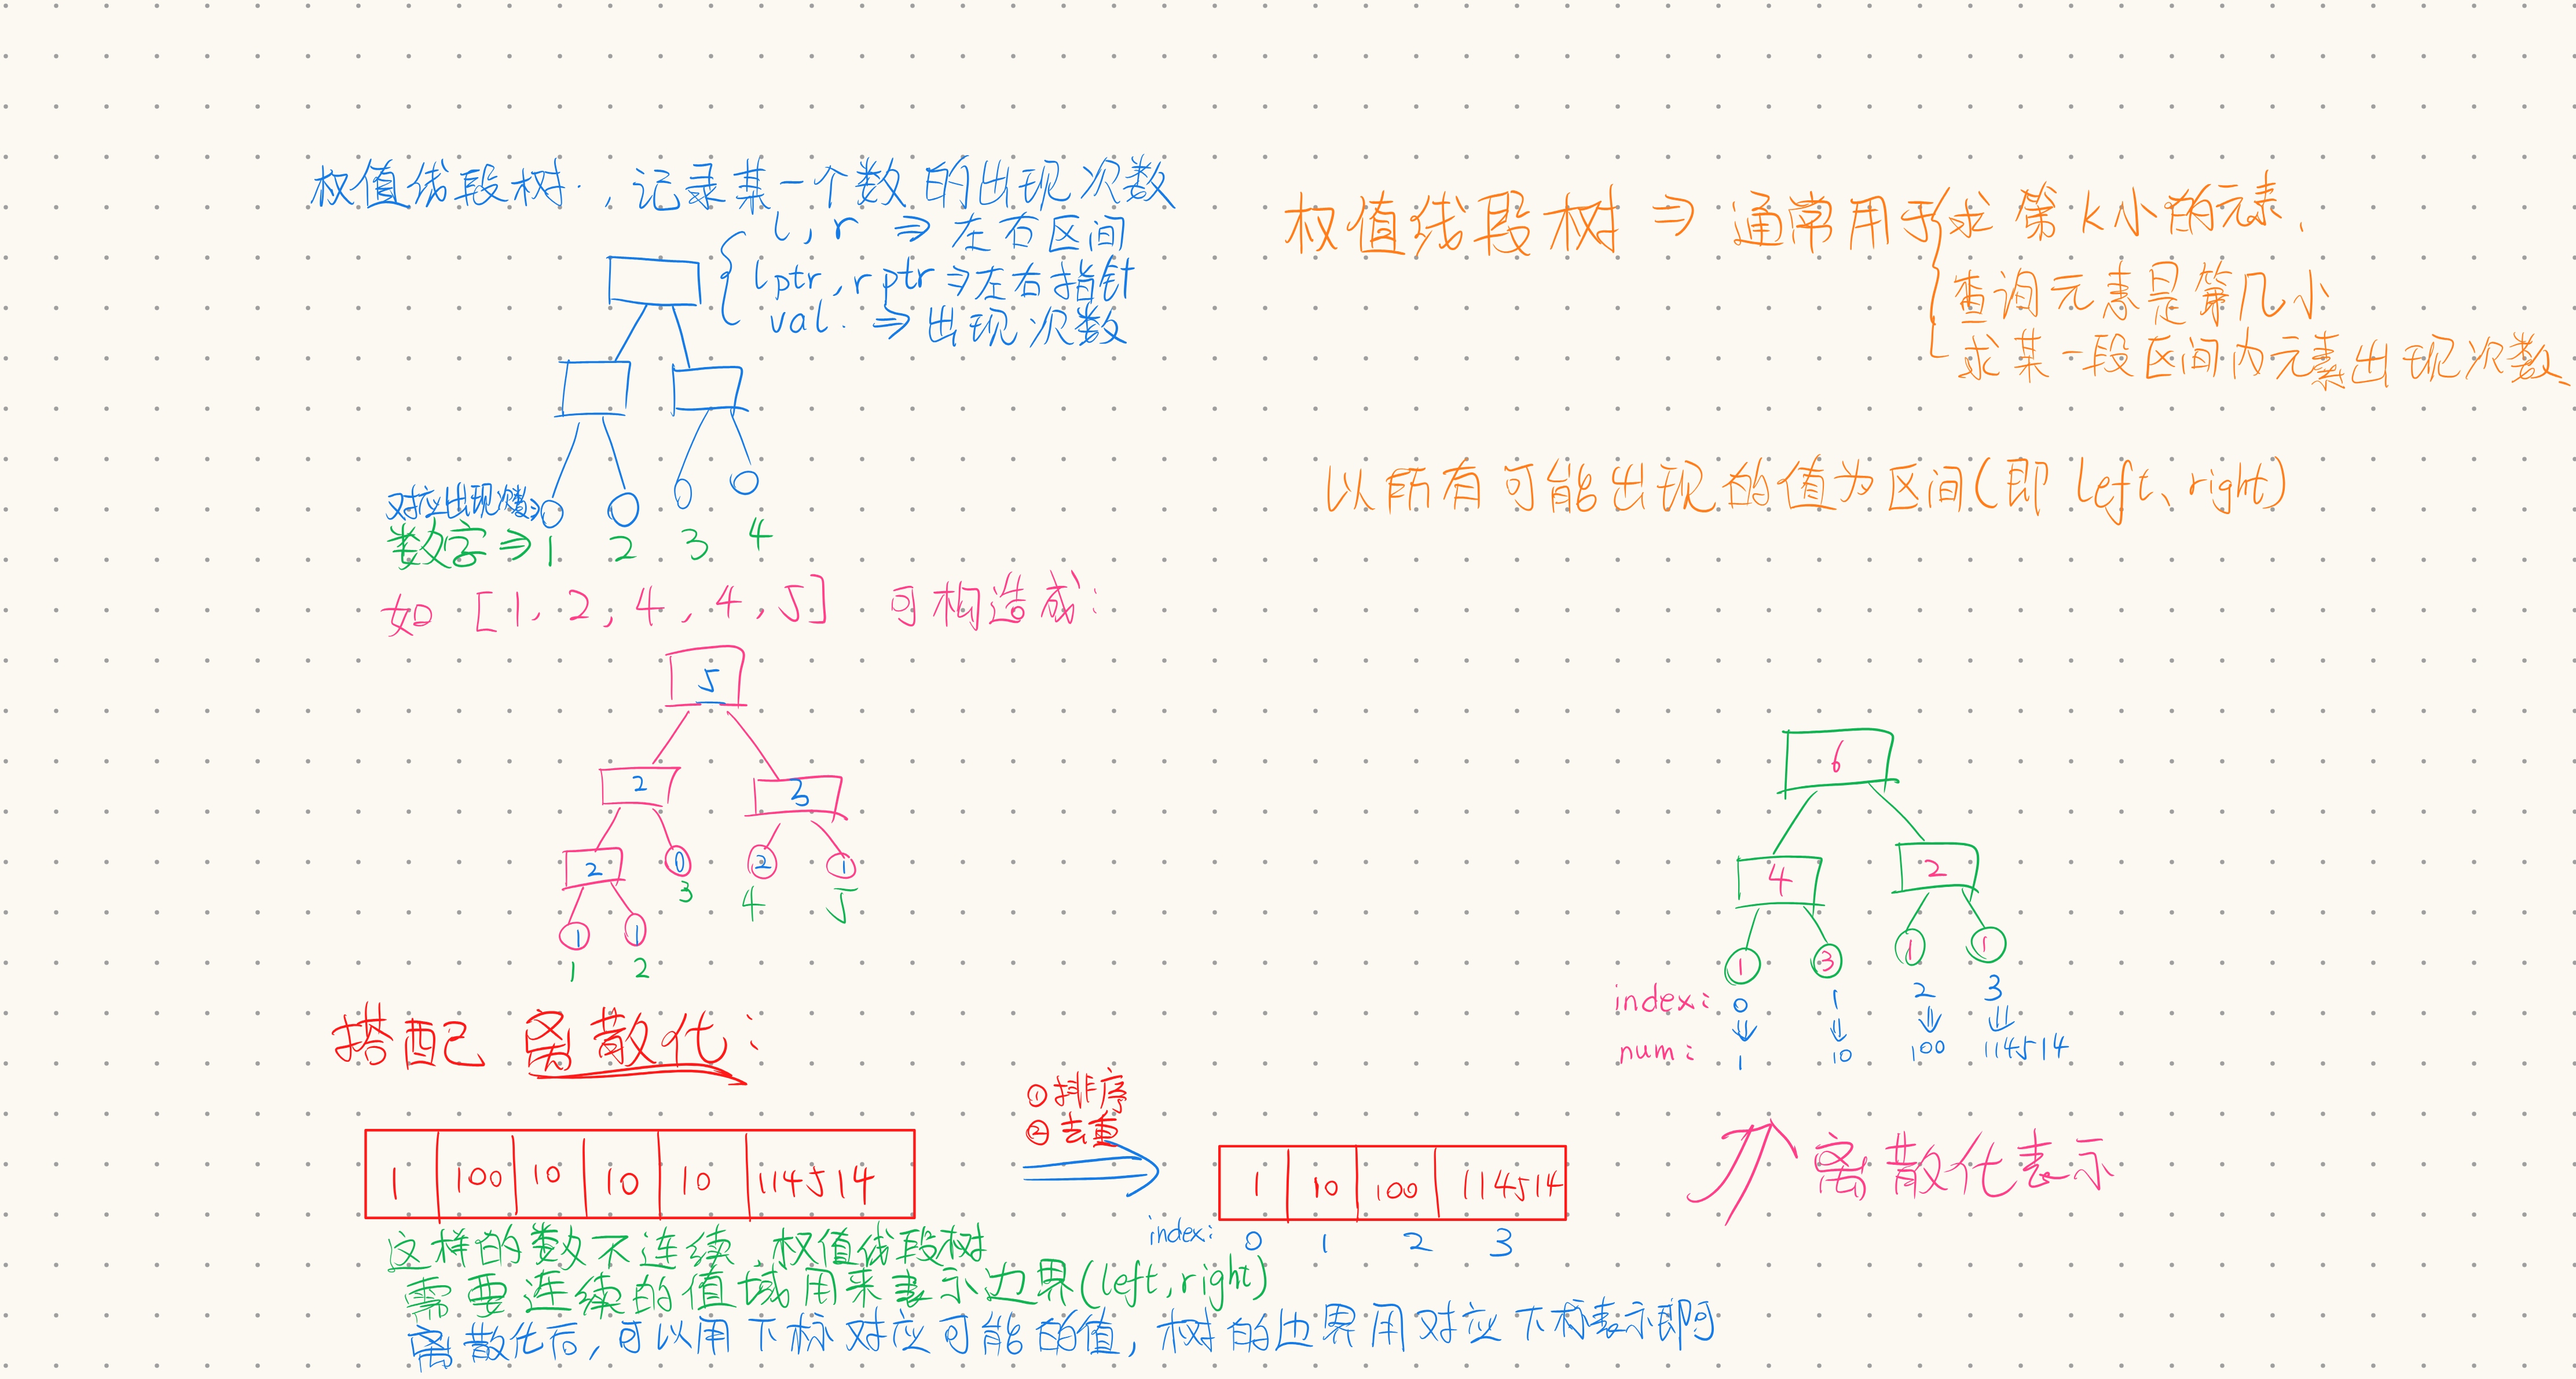 权值线段树.，记录某一个数的出现次数
l, r ⇒ 左右区间
lptr, rptr ⇒ 左右指针
val. ⇒ 出现次数
对应出现次数⇒
数字 ⇒ 1 2 3 4
如 [1, 2, 4, 4, 5] 可构造成：
5
2 3
2 0 2 1
3 4 5
1 1
1 2
搭配 离散化：
1 100 10 10 10 114514
①排序
②去重
1 10 100 114514
index: 0 1 2 3
这样的数不连续，权值线段树
需要连续的值域用来表示边界(left, right)
离散化后，可以用下标对应可能的值，树的边界用对应下标表示即可
权值线段树 ⇒ 通常用于 求第k小的元素.
查询元素是第几小
求某一段区间内元素出现次数、
以所有可能出现的值为区间(即 left、right)
6
4 2
1 3 1 1
index: 0 1 2 3
num: 1 10 100 114514
离散化表示